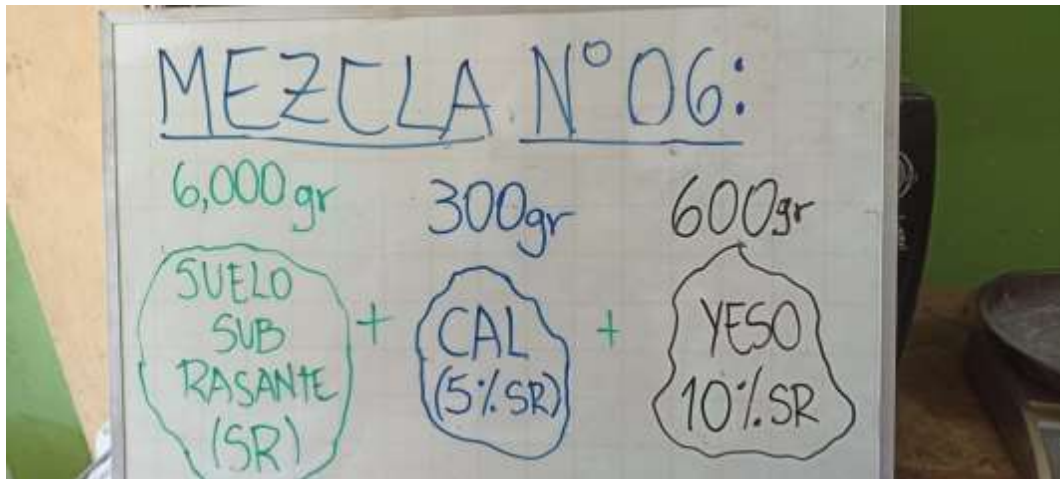 MEZCLA N° 06:
6,000 gr 300gr 600gr
SUELO
SUB
RASANTE
(SR)
+
CAL
(5% SR)
+
YESO
10% SR